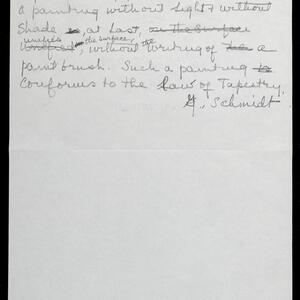 a painting without light & without
Shade is, at last, on the Surface
unifies the surface, the
Unifies, without writing of the a
paint brush. Such a painting is
Conforms to the Law of Tapestry.
G. Schmidt